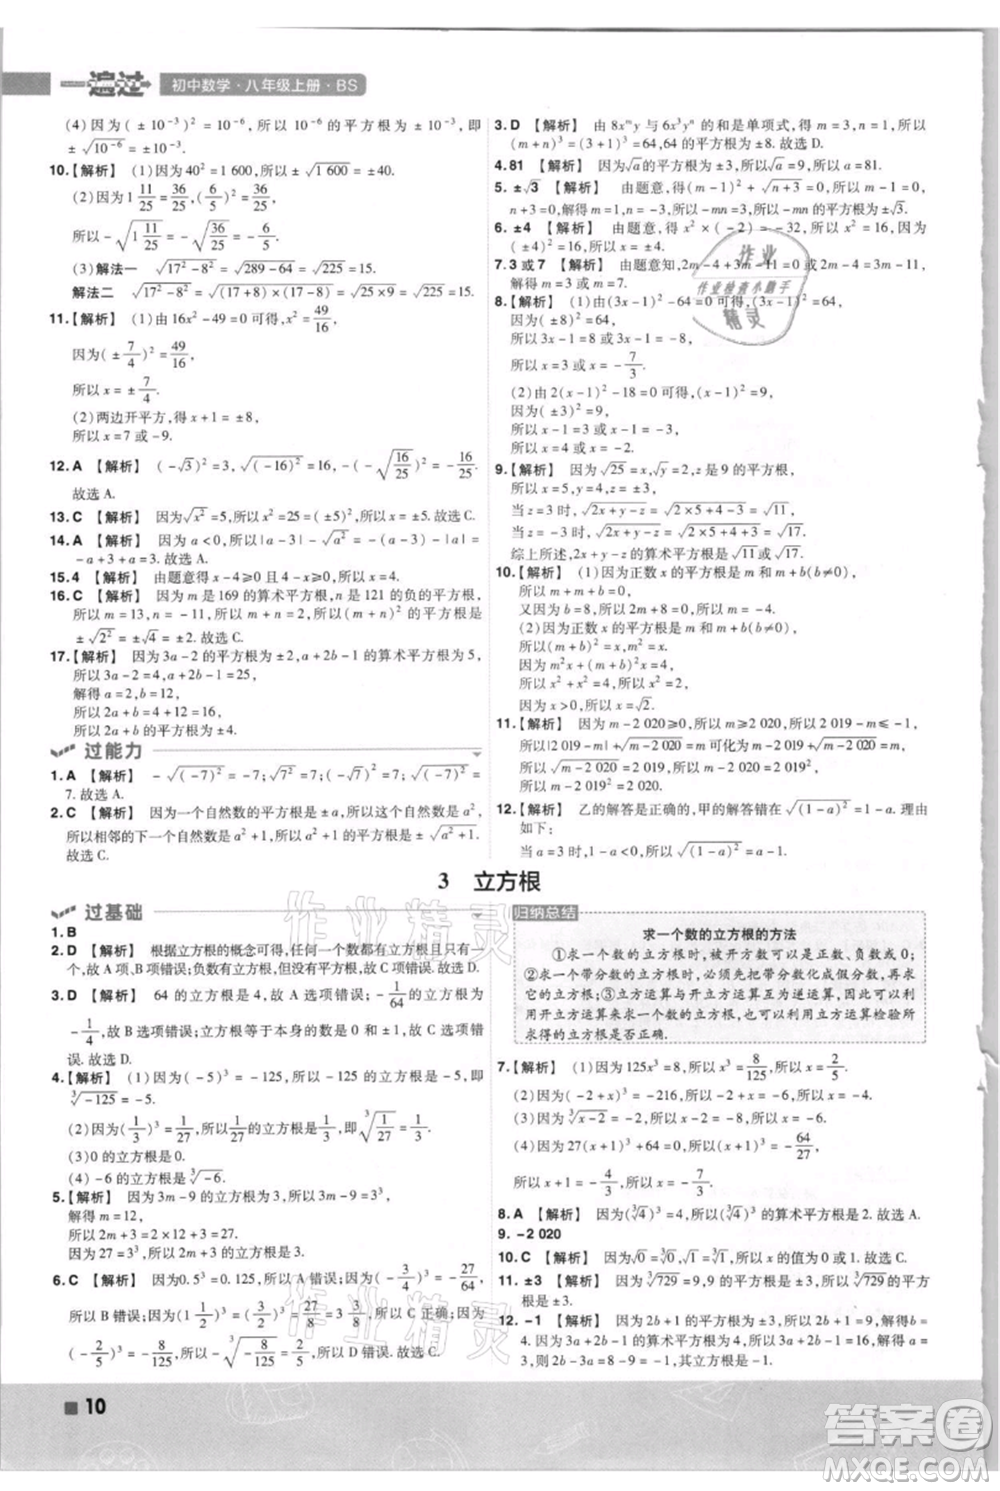 一遍过 初中数学·八年级上册·BS
(4)因为(±10⁻³)²=10⁻⁶,所以10⁻⁶的平方根为±10⁻³,即
±√(10⁻⁶)=±10⁻³.
10.【解析】 (1)因为40²=1 600,所以±√(1 600)=±40.
(2)因为1 11/25=36/25,(6/5)²=36/25,
所以-√(1 11/25)=-√(36/25)=-6/5.
(3)解法一 √(17²-8²)=√(289-64)=√225=15.
解法二 √(17²-8²)=√((17+8)×(17-8))=√(25×9)=√225=15.
11.【解析】 (1)由16x²-49=0可得,x²=49/16,
因为(±7/4)²=49/16,
所以x=±7/4.
(2)两边开平方,得x+1=±8,
所以x=7或-9.
12.A 【解析】 (-√3)²=3,√((-16)²)=16,-√(16/25)=-4/5.
故选A.
13.C 【解析】 因为√(x²)=5,所以x²=25=(±5)²,所以x=±5.故选C.
14.A 【解析】 因为a<0,所以|a-3|-√(a²)=-(a-3)-|a|=
-a+3+a=3.故选A.
15.4 【解析】 由题意得x-4≥0且4-x≥0,解得x=4.
16.C 【解析】 因为m是169的算术平方根,n是121的负的平方根,
所以m=13,n=-11,所以m+n=2,所以(m+n)²的平方根是
±√(2²)=±√4=±2.故选C.
17.【解析】 因为3a-2的平方根为±2,2a+b-1的算术平方根为5,
所以3a-2=4,2a+b-1=25,
解得a=2,b=22,
所以2a-b+34=16,
所以2a-b+34的平方根是±4.
过能力
1.A 【解析】 -√((-7)²)=-7;√(7²)=7;(-√7)²=7;√((-7)²)=
7.故选A.
2.C 【解析】 因为一个自然数的平方根是±a,所以这个自然数是a²,
所以相邻的下一个自然数是a²+1,所以它的平方根是±√(a²+1).
故选C.
3.D 【解析】 由8xᵐy与6x³yⁿ的和是单项式,得m=3,n=1,所以
(m+n)³=(3+1)³=64,64的平方根为±8.故选D.
4.81 【解析】 因为√a的平方根为±3,所以√a=9,所以a=81.
5.±√3 【解析】 由题意,得(m-1)²+√(n+3)=0,所以m-1=0,
n+3=0,解得m=1,n=-3,所以m-n=4
6.±4 【解析】 由题意,得x²×(-2)=-32,所以x²=16,因为
(±4)²=16,所以x=±4.
7.3或7 【解析】 由题意知,2m-4+3m-11=0或2m-4=3m-11,
解得m=3或m=7.
8.【解析】 (1)由(3x-1)²-64=0可得,(3x-1)²=64,
因为(±8)²=64,
所以3x-1=8或3x-1=-8,
所以x=3或x=-7/3.
(2)由2(x-1)²-18=0可得,(x-1)²=9,
因为(±3)²=9,
所以x-1=3或x-1=-3,
所以x=4或x=-2.
9.【解析】 因为√25=x,√y=2,z是9的平方根,
所以x=5,y=4,z=3或z=-3.
当z=3时,√(2x+y-z)=√(2×5+4-3)=√11;
当z=-3时,√(2x+y-z)=√(2×5+4+3)=√17.
综上所述,2x+y-z的算术平方根是√11或√17.
10.【解析】 (1)因为正数x的平方根是m和m+b(b≠0),
所以m+m+b=0,
又因为b=8,所以2m+8=0,所以m=-4.
(2)因为正数x的平方根是m和m+b(b≠0),
所以(m+b)²=x,m²=x.
因为m²x+(m+b)²x=4,所以x²+x²=4,所以x²=2,
因为x>0,所以x=√2.
11.【解析】 因为m-2 020≥0,所以m≥2 020,所以2 019-m≤-1,
所以|2 019-m|+√(m-2 020)=m-2 019+√(m-2 020)=m,
所以√(m-2 020)=2 019,所以m-2 020=2 019²,
所以m-2 019²=2 020.
12.【解析】 乙的解答是正确的,甲的解答错在√((1-a)²)=1-a.理由
如下:
当a=3时,1-a<0,所以√((1-a)²)=-(1-a)=a-1.
3 立方根
过基础
1.B
2.D 【解析】 根据立方根的概念可得,任何一个数都有立方根且只有一
个,故A项、B项错误;负数有立方根,但没有平方根,故C项错误.故选D.
3.D 【解析】 64的立方根是4,故A选项错误;-1/64的立方根是
-1/4,故B选项错误;立方根等于本身的数是0和±1,故C选项错
误.故选D.
4.【解析】 (1)因为(-5)³=-125,所以-125的立方根是-5,即
∛(-125)=-5.
(2)因为(1/3)³=1/27,所以1/27的立方根是1/3,即∛(1/27)=1/3.
(3)0的立方根是0.
(4)-6的立方根是∛(-6).
5.【解析】 因为3m-9的立方根是3,所以3m-9=3³,
解得m=12,
所以2m-8=2×12-8=16,
所以2m-8的平方根是±4.
6.C 【解析】 因为0.5³=0.125,所以A错误;因为(-3/4)³=-27/64,
所以B错误;因为(1 1/2)³=(3/2)³=27/8=3 3/8,所以C正确;因为
(-2/5)³=-8/125,所以∛(-8/125)=-2/5,所以D错误.故选C.
归纳总结
求一个数的立方根的方法
①求一个数的立方根时,被开方数可以是正数、负数或0;
②求一个带分数的立方根时,必须先把带分数化成假分数,再
求它的立方根;③立方运算与开立方运算互为逆运算,可以利
用开立方运算求一个数的立方根,也可以利用立方运算检验所
求得的立方根是否正确.
7.【解析】 (1)因为125x³=8,所以x³=8/125,所以x=2/5.
(2)因为(-2+x)³=-216,所以-2+x=-6,所以x=-4.
(3)因为∛(x-2)=-2,所以x-2=-8,所以x=-6.
(4)因为27(x+1)³+64=0,所以(x+1)³=-64/27,
所以x+1=-4/3,所以x=-7/3.
8.A 【解析】 因为(∛4)³=4,所以(∛4)³的算术平方根是2.故选A.
9.-2 020
10.C 【解析】 因为√0=∛0,√1=∛1,所以x的值为0或1.故选C.
11.±3 【解析】 因为∛729=9,9的平方根是±3,所以∛729的平方根
是±3.
12.-1 【解析】 因为2b+1的平方根为±3,所以2b+1=9,解得b=4.因为
3a+2b-1的算术平方根为4,所以3a+2b-1=16,解得a=
3,所以2b-3a=8-9=-1,其立方根是-1.
10
作业精灵
作业精灵
作业
作业检查小助手
精灵
答案圈
MXQE.COM